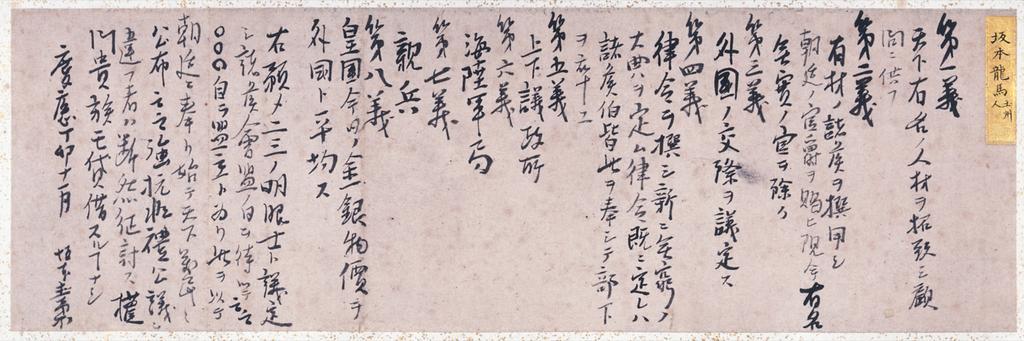 坂本龍馬 土州人
第一義
天下有名ノ人材ヲ招致シ顧
問ニ供フ
第二義
有材ノ諸侯ヲ撰用シ
朝廷ノ官爵ヲ賜ヒ現今有名
無實ノ官ヲ除ク
第三義
外國ノ交際ヲ議定ス
第四義
律令ヲ撰シ新ニ無窮ノ
大典ヲ定ム律令既ニ定レハ
諸侯伯皆此ヲ奉シテ部下
ヲ率ス
第五義
上下議政所
第六義
海陸軍局
第七義
親兵
第八義
皇国今日ノ金銀物價ヲ
外國ト平均ス
右預メ二三ノ明眼士ト議定
シ諸侯會盟ノ日ヲ待ツテ云云
○○○自ラ盟主ト為リ此ヲ以テ
朝廷ニ奉リ始テ天下萬民ニ
公布云云強抗非禮公議ニ
違フ者ハ断然征討ス權
門貴族モ貸借スルナシ
慶應丁卯十一月 坂本直柔